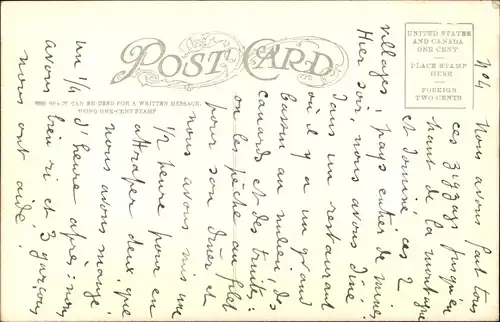 POST CARD
THIS SPACE CAN BE USED FOR A WRITTEN MESSAGE,
USING ONE-CENT STAMP
UNITED STATES
AND CANADA
ONE CENT
PLACE STAMP
HERE
FOREIGN
TWO CENTS
No 4 Nous avons fait tous
ces zigzags jusqu'en
haut de la montagne
et dominé ces 2
villages, pays entier de mines.
Hier soir, nous avons dîné
dans un restaurant
où il y a un grand
bassin au milieu, des
canards et des truites:
on les pêche au filet
pour son dîner et
nous avons mis une
1/2 heure pour en
attraper deux, que
nous avons mangé
un 1/4 d'heure après; nous
avons bien ri et 3 garçons
nous ont aidé!